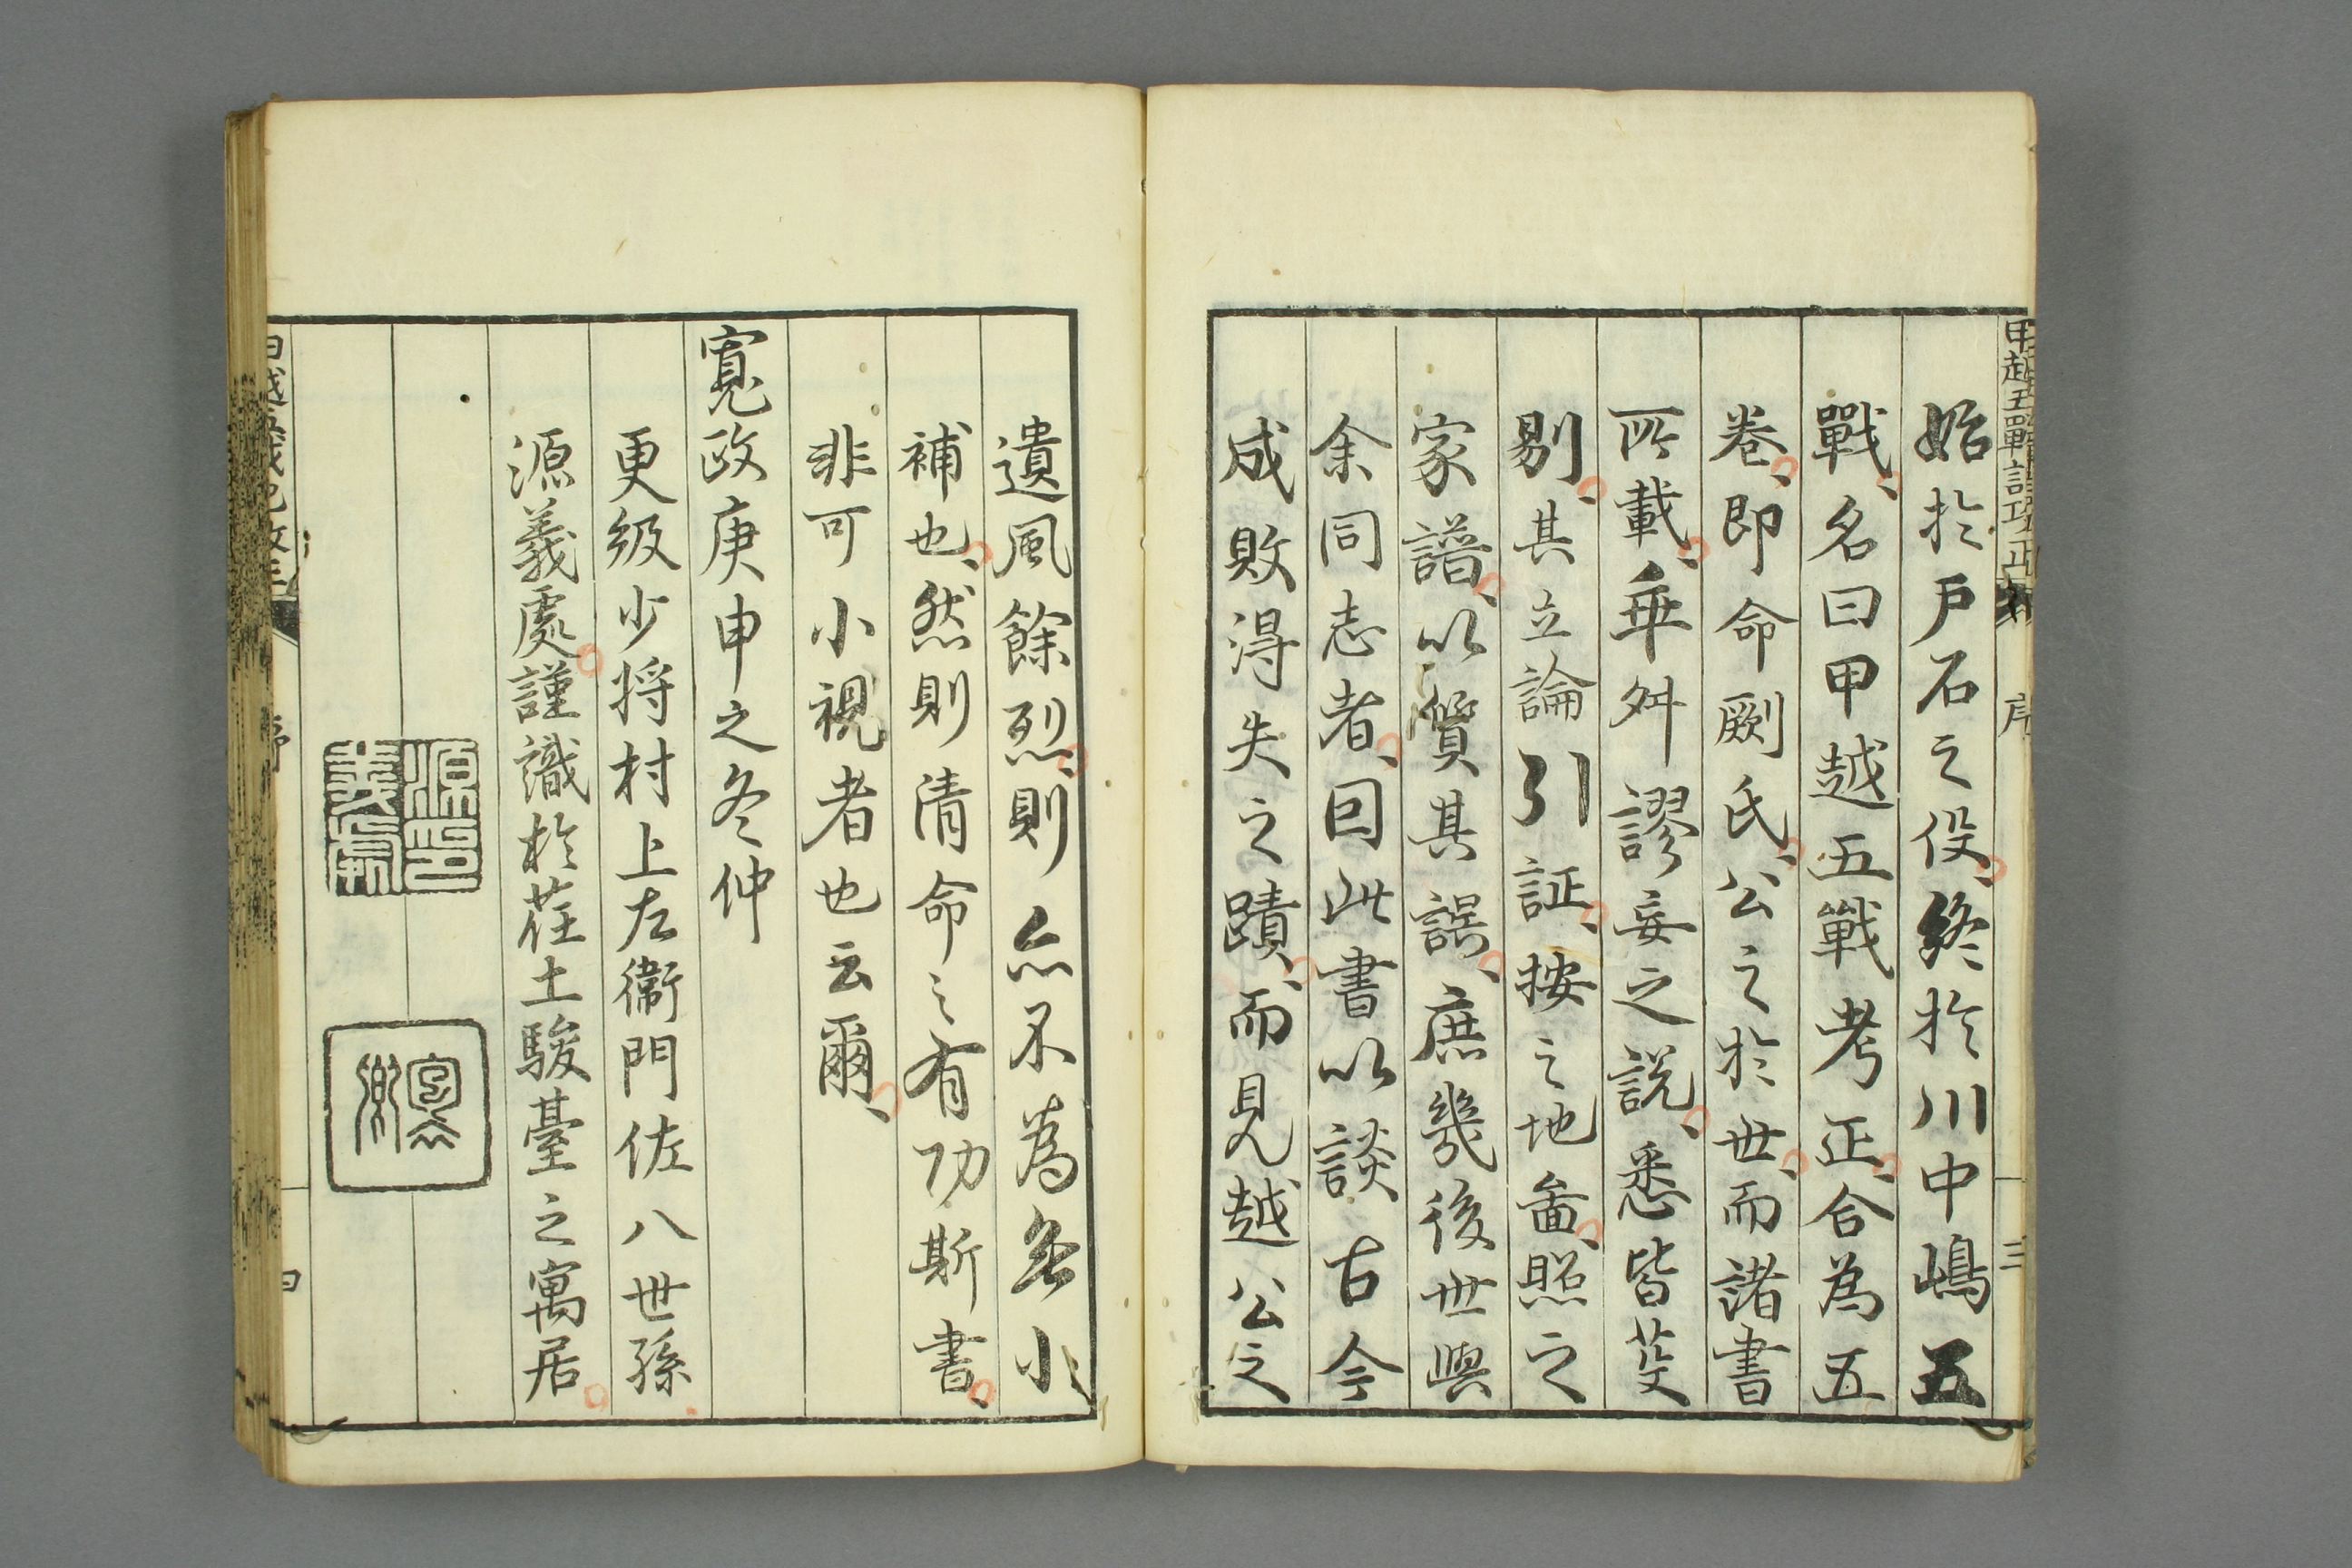 甲越五戰記考正 序 三
始於戸石之役終於川中嶋五
戰名曰甲越五戰考正合為五
卷即命劂氏公之於世而諸書
所載乖舛謬妄之説悉皆芟
剔其立論引証按之地啚照之
家譜以質其誤庶幾後世與
余同志者因此書以談古今
成敗得失之蹟而見越公之
遺風餘烈則亦不為無小
補也然則清命之有功斯書
非可小視者也云爾
寛政庚申之冬仲
更級少将村上左衞門佐八世孫
源義處謹識於荏土駿臺之寓居
源印義處
序